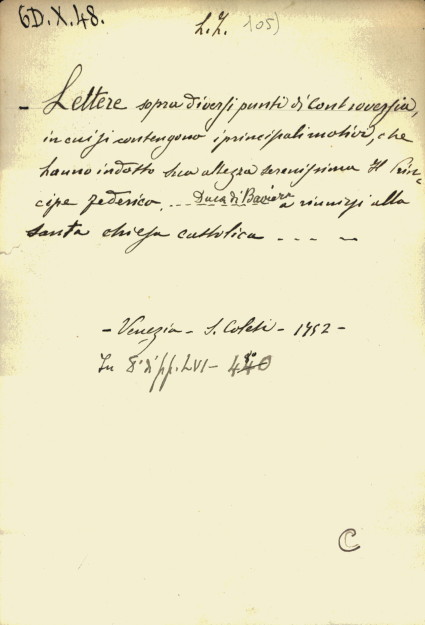 6D.X.48.
L.Z. 105)
- Lettere sopra diversi punti di controversia,
in cui si contengono i principali motivi, che
hanno indotto sua altezza serenissima Il Prin-
cipe Federico, ... Duca di Baviera a riunirsi alla
santa chiesa cattolica - - - -
- Venezia - S. Coleti - 1752 -
In 8° di pp. LVI - 440
C